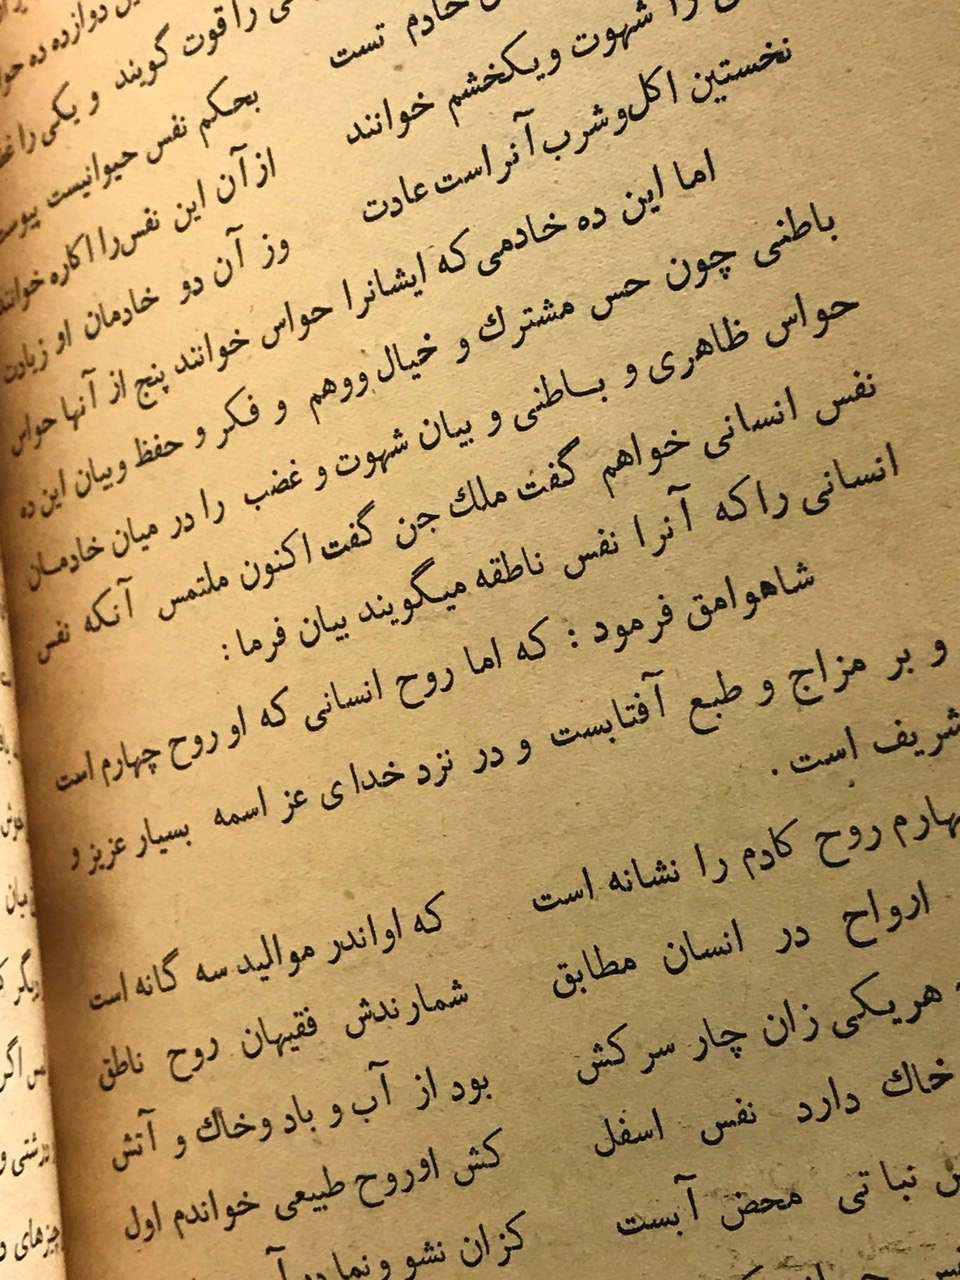 دوازده ده
را قوت گویند و یکی را
خادم تست
بحکم نفس حیوانیست
را شهوت ویکخشم خوانند
از آن این نفس را اکاره خوانند
نخستین اکل و شرب آنر است عادت
وز آن دو خادمان او زیادت
اما این ده خادمی که ایشانرا حواس خوانند پنج از آنها حواس
باطنی چون حس مشترك و خیال ووهم و فکر و حفظ وبیان این ده
حواس ظاهری و باطنی و بیان شهوت و غضب را در میان خادمان
نفس انسانی خواهم گفت ملك جن گفت اکنون ملتمس آنکه نفس
انسانی را که آنرا نفس ناطقه میگویند بیان فرما :
شاهوامق فرمود : که اما روح انسانی که او روح چهارم است
و بر مزاج و طبع آفتابست و در نزد خدای عز اسمه بسیار عزیز و
شریف است .
چهارم روح کادم را نشانه است
که اواندر موالید سه گانه است
ارواح در انسان مطابق
شمارندش فقیهان روح ناطق
هریکی زان چار سر کش
بود از آب و باد وخاك و آتش
خاك دارد نفس اسفل
کش اوروح طبیعی خواندم اول
نباتی محض آبست
کزان نشو ونما